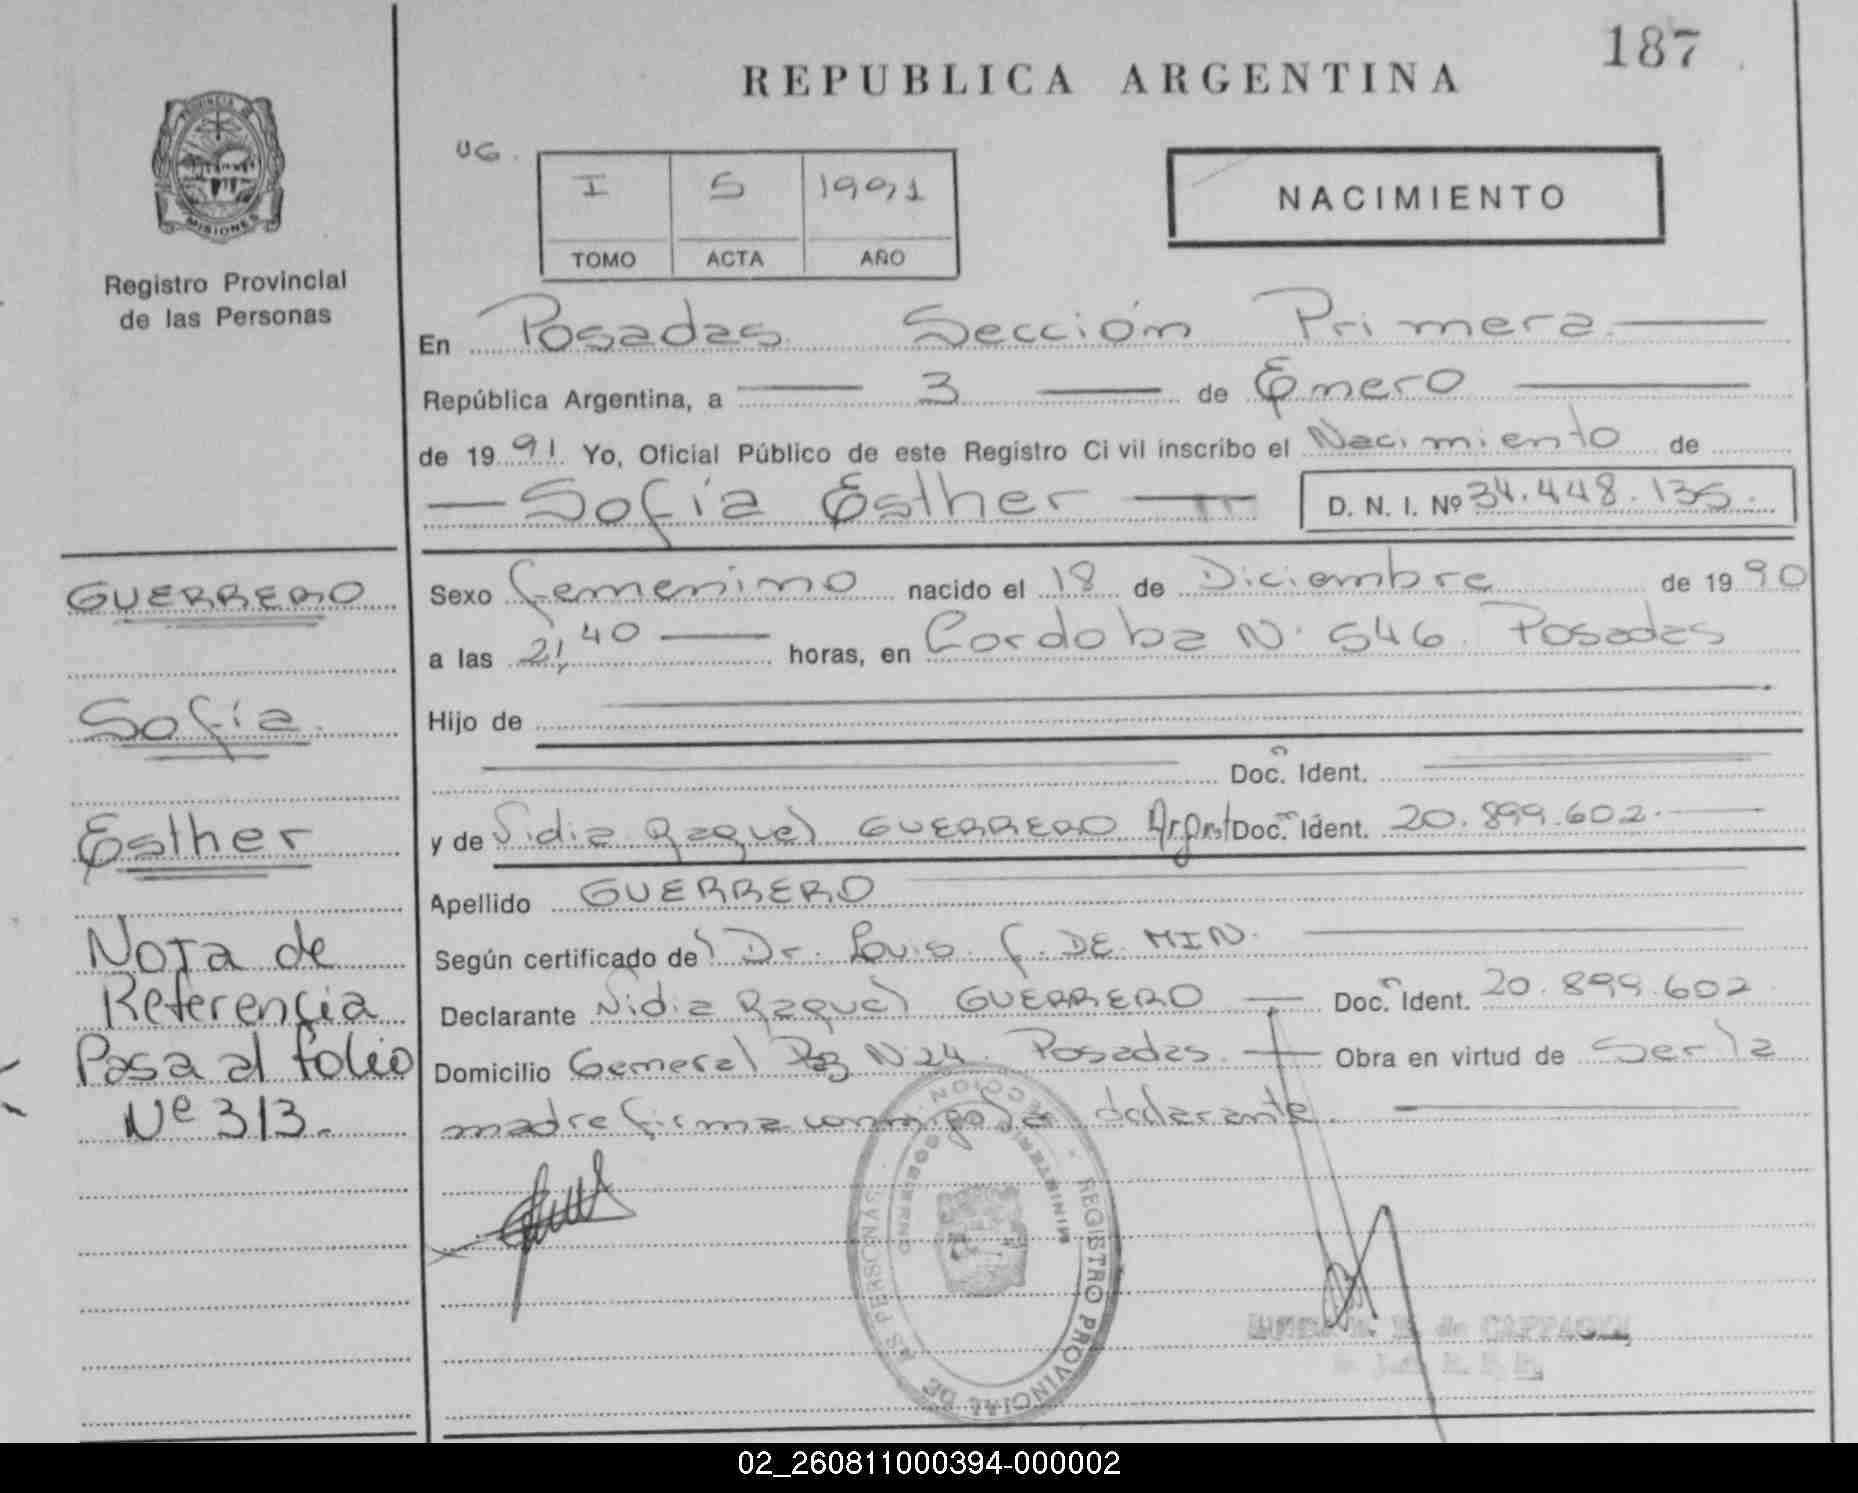 187
REPUBLICA ARGENTINA
PROVINCIA DE
MISIONES
Registro Provincial
de las Personas
UG.
I S 1991
TOMO ACTA AÑO
NACIMIENTO
En Posadas Sección Primera
República Argentina, a 3 de Enero
de 1991. Yo, Oficial Público de este Registro Civil inscribo el Nacimiento de
Sofía Esther D. N. I. Nº 34.448.135.
GUERRERO
Sofía
Esther
Nota de
Referencia
Pasa al folio
Nº 313.
Sexo femenino nacido el 18 de Diciembre de 1990
a las 21,40 horas, en Cordoba N. 546. Posadas
Hijo de
Doc. Ident.
y de Nidia Raquel GUERRERO Doc. Ident. 20.899.602.
Apellido GUERRERO
Según certificado del Dr. Luis F. DE MIN.
Declarante Nidia Raquel GUERRERO Doc. Ident. 20.899.602
Domicilio General Paz N 24. Posadas. Obra en virtud de ser la
madre firma conmigo la declarante.
REGISTRO PROVINCIAL DE LAS PERSONAS
MINISTERIO GOBIERNO
02_260811000394-000002